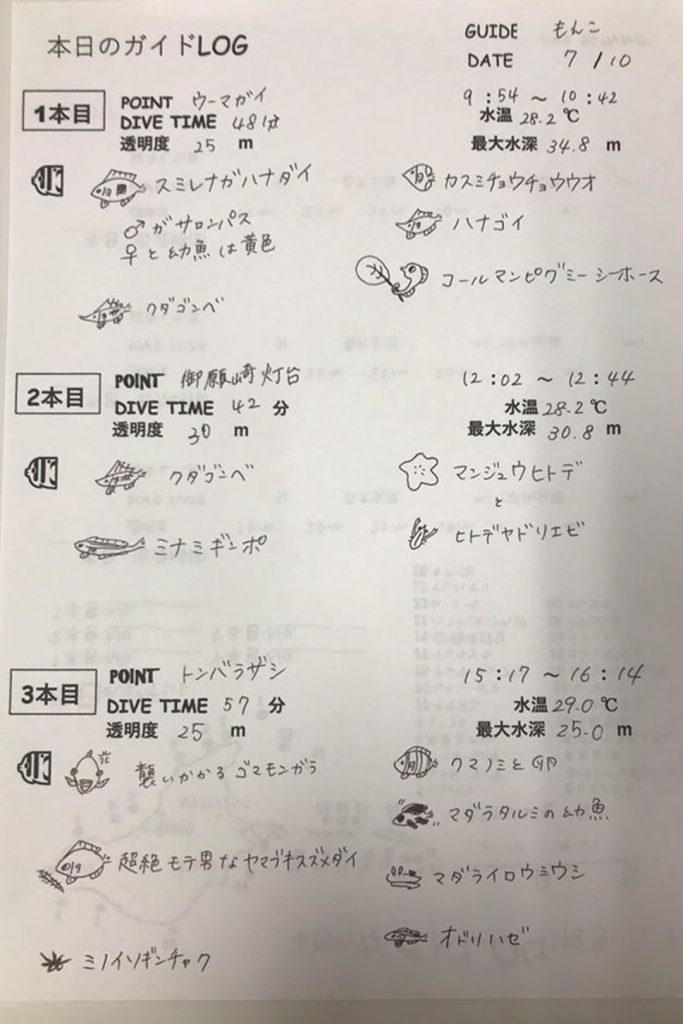 本日のガイドLOG
GUIDE もんこ
DATE 7/10
1本目
POINT ウーマガイ
9:54 ~ 10:42
DIVE TIME 48分
水温 28.2℃
透明度 25 m
最大水深 34.8 m
スミレナガハナダイ
♂がサロンパス
♀と幼魚は黄色
クダゴンベ
カスミチョウチョウウオ
ハナゴイ
コールマンピグミーシーホース
2本目
POINT 御願崎灯台
12:02 ~ 12:44
DIVE TIME 42 分
水温 28.2℃
透明度 30 m
最大水深 30.8 m
クダゴンベ
ミナミギンポ
マンジュウヒトデ
と
ヒトデヤドリエビ
3本目
POINT トンバラザシ
15:17 ~ 16:14
DIVE TIME 57 分
水温 29.0℃
透明度 25 m
最大水深 25.0 m
襲いかかるゴマモンガラ
超絶モテ男なヤマブキスズメダイ
ミノイソギンチャク
クマノミと卵
マダラタルミの幼魚
マダライロウミウシ
オドリハゼ